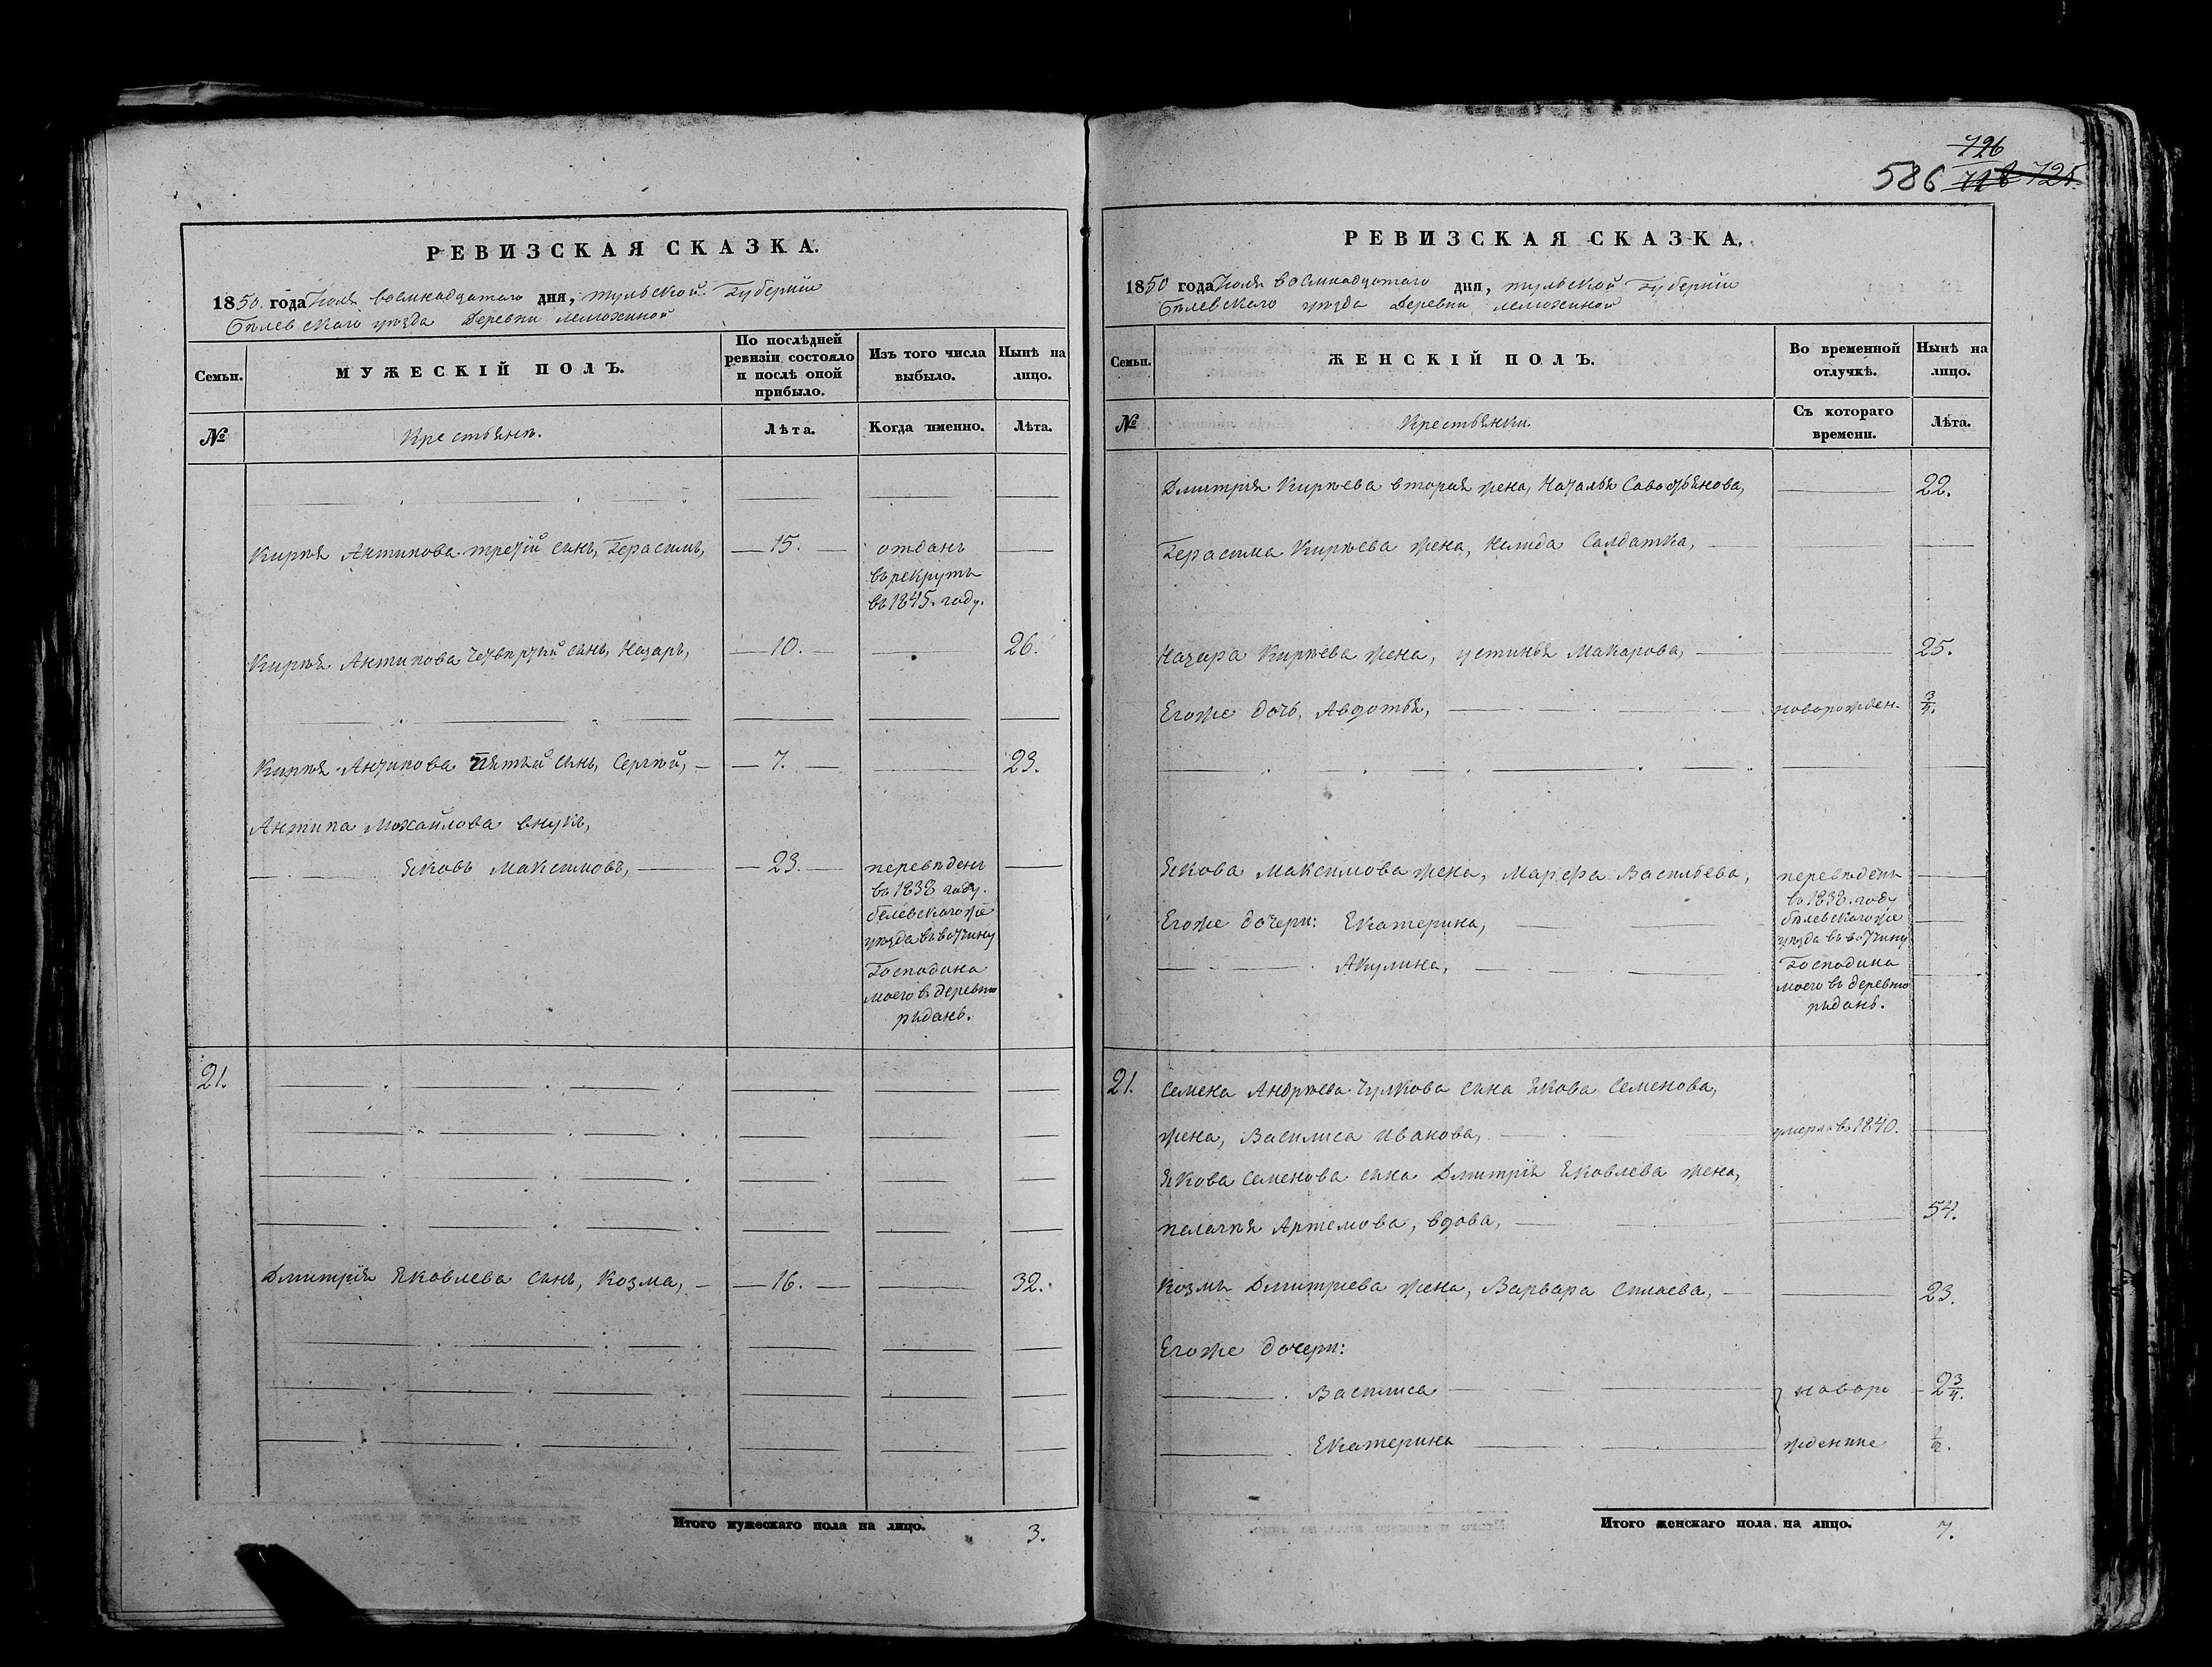 РЕВИЗСКАЯ СКАЗКА.
1850. года Июля восмнадцатаго дня, тульской Губернии
Бѣлевскаго уѣзда Деревни
Семьи.
МУЖЕСКІЙ ПОЛЪ.
По послѣдней
ревизіи состояло
и послѣ оной
прибыло.
Изъ того числа
выбыло.
Нынѣ на
лицо.
№
Крестьянѣ.
Лѣта.
Когда именно.
Лѣта.
Кирѣя Антипова третій сынъ, Герасимъ, 15. отданъ
въ рекруты
въ 1845. году.
Кирѣя Антипова четвертый сынъ, Назаръ, 10. 26.
Кирѣя Антипова пятый сынъ, Сергѣй, 7. 23.
Антипа Михайлова внукъ,
Яковъ Максимовъ, 23. переведенъ
въ 1838 году.
бѣлевскаго же
уѣзда въ вотчину
Господина
моего в деревню
рѣдань.
21.
Дмитрія Яковлева сынъ, Козма, 16. 32.
Итого мужескаго пола на лицо. 3.
726
586 728 725.
РЕВИЗСКАЯ СКАЗКА.
1850 года Июля восмнадцатаго дня, тульской Губернии
Бѣлевскаго уѣзда Деревни
Семьи.
ЖЕНСКІЙ ПОЛЪ.
Во временной
отлучкѣ.
Нынѣ на
лицо.
№
Крестьянки
Съ котораго
времени.
Лѣта.
Дмитрія Кирѣева вторая жена, Наталья Савостьянова, 22.
Герасима Кирѣева жена, Солдатка,
Назара Кирѣева жена, устинья Макарова, 25.
Егоже дочь, Авдотья, новорожден. 3/4.
Якова Максимова жена, Марфа Васильева, переведены
въ 1838. году
Егоже дочери: Екатерина, бѣлевскаго же
уѣзда въ вотчину
Акулина, Господина
моего въ деревню
рѣдань.
21. Семена Андрѣева Чулкова сына Якова Семенова,
жена, Василиса Иванова, умерла въ 1840.
Якова Семенова сына Дмитрія Яковлева жена,
пелагѣя Артемова, вдова, 54.
Козмы Дмитриева жена, Варвара Силаева, 23.
Егоже дочери:
Василиса новоро 2 3/4.
Екатерина жденные 1/2.
Итого женскаго пола на лицо. 7.